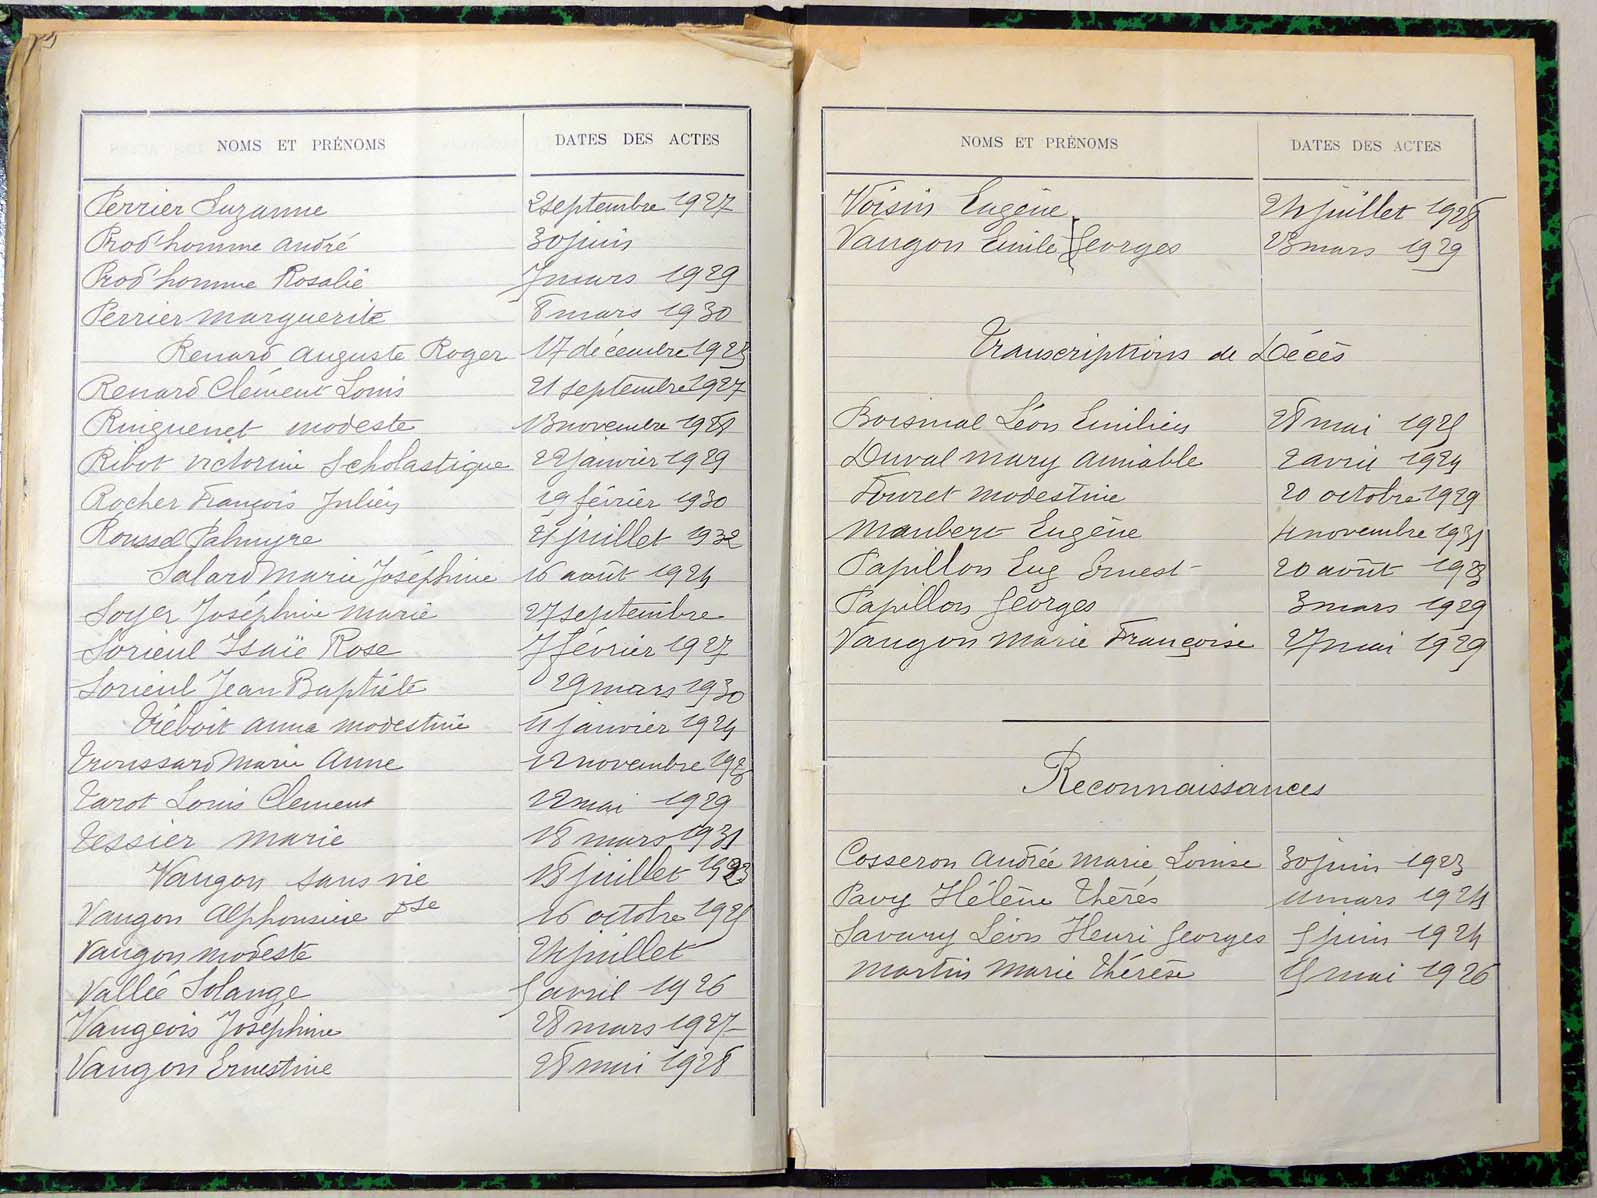 NOMS ET PRÉNOMS DATES DES ACTES
Perrier Suzanne 2 septembre 1927
Prod'homme André 30 juin
Prod'homme Rosalie 7 mars 1929
Perrier Marguerite 8 mars 1930
Renard Auguste Roger 17 décembre 1923
Renard Clément Louis 21 septembre 1927
Ringuenet Modeste 13 novembre 1928
Ribot Victorine Scholastique 22 janvier 1929
Rocher François Julien 19 février 1930
Roussel Palmyre 21 juillet 1932
Salard Marie Joséphine 16 août 1924
Soyer Joséphine Marie 27 septembre
Sorieul Isaïe Rose 7 février 1927
Sorieul Jean Baptiste 29 mars 1930
Tréboit Anna Modestine 11 janvier 1924
Troussard Marie Anne 12 novembre
Tarot Louis Clement 22 mai 1929
Tessier Marie 18 mars 1931
Vaugon sans vie 18 juillet 1923
Vaugon Alphonsine 16 octobre 1925
Vaugon Modeste 24 juillet
Vallée Solange 5 avril 1926
Vaugeois Joséphine 28 mars 1927
Vaugon Ernestine 28 mai 1928
NOMS ET PRÉNOMS DATES DES ACTES
Voisin Eugène 24 juillet 1928
Vaugon Emile Georges 28 mars 1929
Transcriptions de Décès
Boismal Léon Emilien 28 mai 1925
Duval Mary Aimable 2 avril 1924
Fouret Modestine 20 octobre 1929
Maubert Eugène 4 novembre 1931
Papillon Eug Ernest 20 août 1923
Papillon Georges 3 mars 1929
Vaugon Marie Françoise 27 mai 1929
Reconnaissances
Cosseron Andrée Marie Louise 30 juin 1923
Pavy Hélène Thérés 11 mars 1924
Savary Léon Henri Georges 5 juin 1924
Martin Marie Thérèse 15 mai 1926